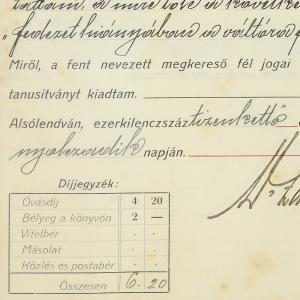 "fedezet hiányában a váltóra
Miről, a fent nevezett megkereső fél jogai
tanusitványt kiadtam.
Alsólendván, ezerkilenczszáz tizenkettő
nyolczadik napján.
Díjjegyzék:
Óvásdíj 4 20
Bélyeg a könyvön 2 —
Vitelbér
Másolat
Közlés és postabér
Összesen 6. 20